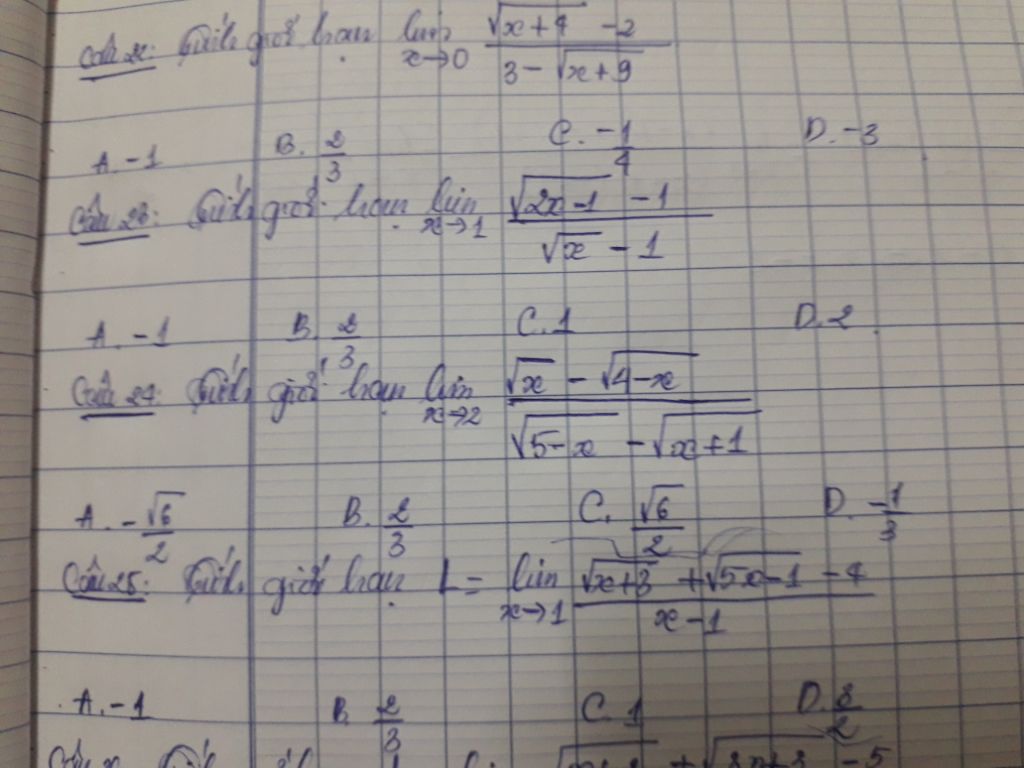 Câu 22: Tính giới hạn lim x→0 (√(x+4) - 2)/(3 - √(x+9))
A. -1 B. 2/3 C. -1/4 D. -3
Câu 23: Tính giới hạn lim x→1 (√(2x-1) - 1)/(√x - 1)
A. -1 B. 2/3 C. 1 D. 2
Câu 24: Tính giới hạn lim x→2 (√x - √(4-x))/(√(5-x) - √(x+1))
A. -√6/2 B. 2/3 C. √6/2 D. -1/3
Câu 25: Tính giới hạn L = lim x→1 (√(x+3) + √(5x-1) - 4)/(x-1)
A. -1 B. 2/3 C. 1 D. 3/2